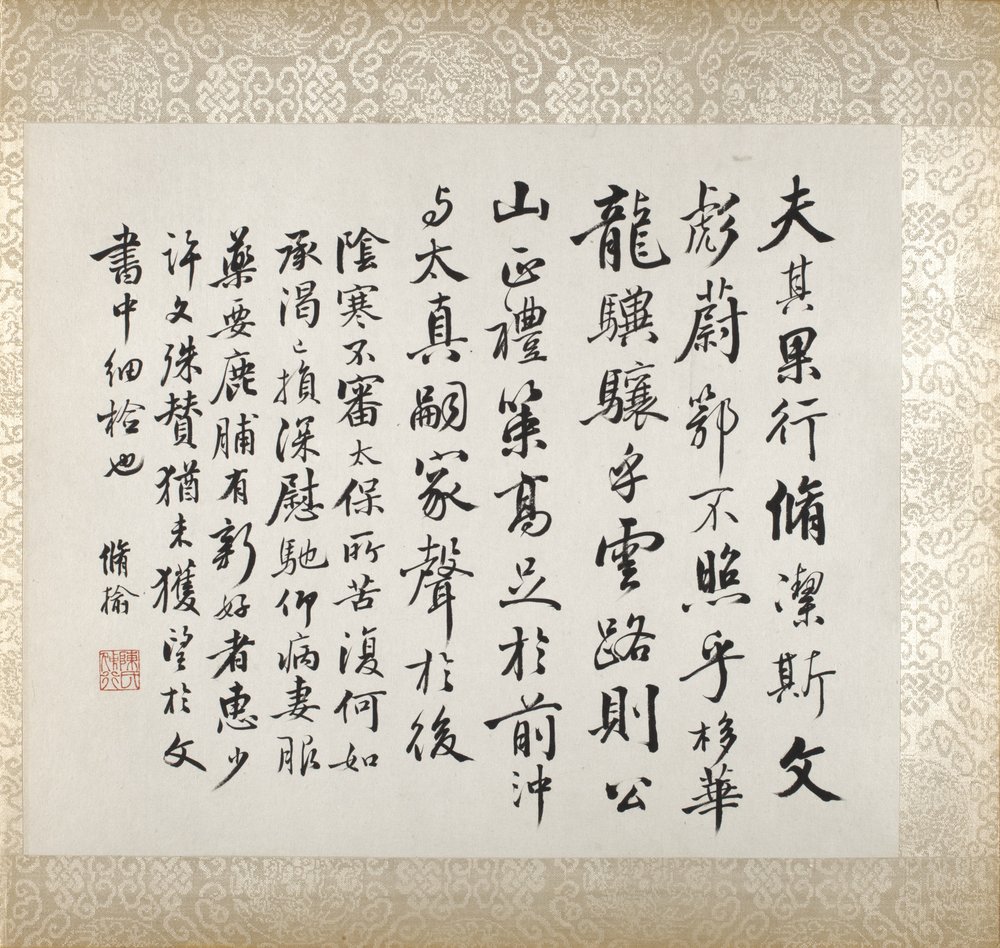 夫其果行脩潔斯文
彪蔚鄂不照乎栘華
龍驥驤乎雲路則公
山正禮策高足於前沖
与太真嗣家聲於後
陰寒不審太保所苦復何如
承渴已損深慰馳仰病妻服
藥要鹿脯有新好者惠少
許文殊贊猶未獲望於文
書中細檢也
脩榆